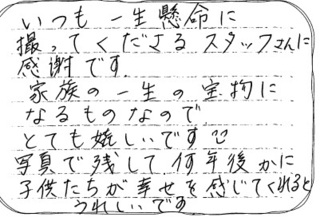 いつも一生懸命に
撮ってくださるスタッフさんに
感謝です.
家族の一生の宝物に
なるものなので
とても嬉しいです
写真で残して何年後かに
子供たちが幸せを感じてくれると
うれしいです